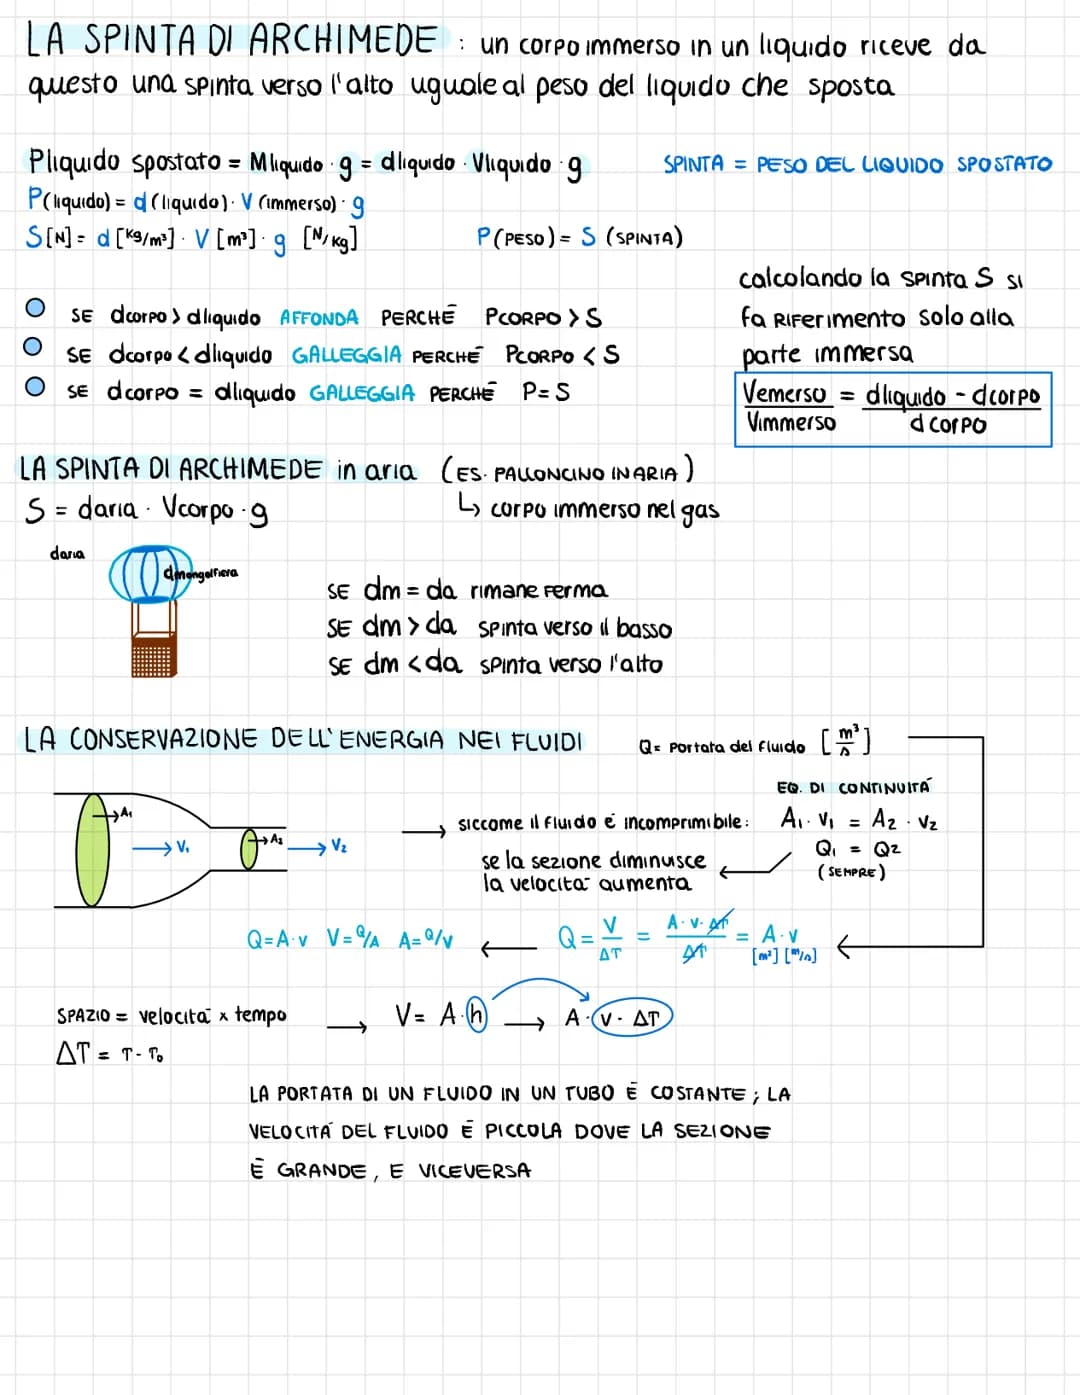 LA SPINTA DI ARCHIMEDE : un corpo immerso in un liquido riceve da
questo una spinta verso l'alto uguale al peso del liquido che sposta
Pliquido spostato = Mliquido · g = dliquido · Vliquido · g
SPINTA = PESO DEL LIQUIDO SPOSTATO
P(liquido) = d (liquido) · V (immerso) · g
S[N] = d [Kg/m³] · V [m³] · g [N/Kg]
P(PESO) = S (SPINTA)
SE dcorpo > dliquido AFFONDA PERCHÉ PCORPO > S
SE dcorpo < dliquido GALLEGGIA PERCHÉ PCORPO < S
SE dcorpo = dliquido GALLEGGIA PERCHÉ P = S
calcolando la spinta S si
fa riferimento solo alla
parte immersa
Vemerso / Vimmerso = dliquido - dcorpo / dcorpo
LA SPINTA DI ARCHIMEDE in aria (ES. PALLONCINO IN ARIA)
S = daria · Vcorpo · g
↳ corpo immerso nel gas
daria
dmongolfiera
SE dm = da rimane ferma
SE dm > da spinta verso il basso
SE dm < da spinta verso l'alto
LA CONSERVAZIONE DELL'ENERGIA NEI FLUIDI
Q= Portata del fluido [m³/s]
EQ. DI CONTINUITÁ
A₁
V₁
A₂
V₂
→ siccome il fluido é incomprimibile: A₁ · V₁ = A₂ · V₂
Q₁ = Q₂
(SEMPRE)
se la sezione diminuisce
la velocità aumenta
Q=A·v V=Q/A A=Q/V ← Q = V/ΔT = A·V·ΔT/ΔT = A·V
[m²] [m/s]
SPAZIO = velocità x tempo → V = A·h → A·(V · ΔT)
ΔT = T - T₀
LA PORTATA DI UN FLUIDO IN UN TUBO É COSTANTE ; LA
VELOCITÁ DEL FLUIDO É PICCOLA DOVE LA SEZIONE
É GRANDE, E VICEVERSA